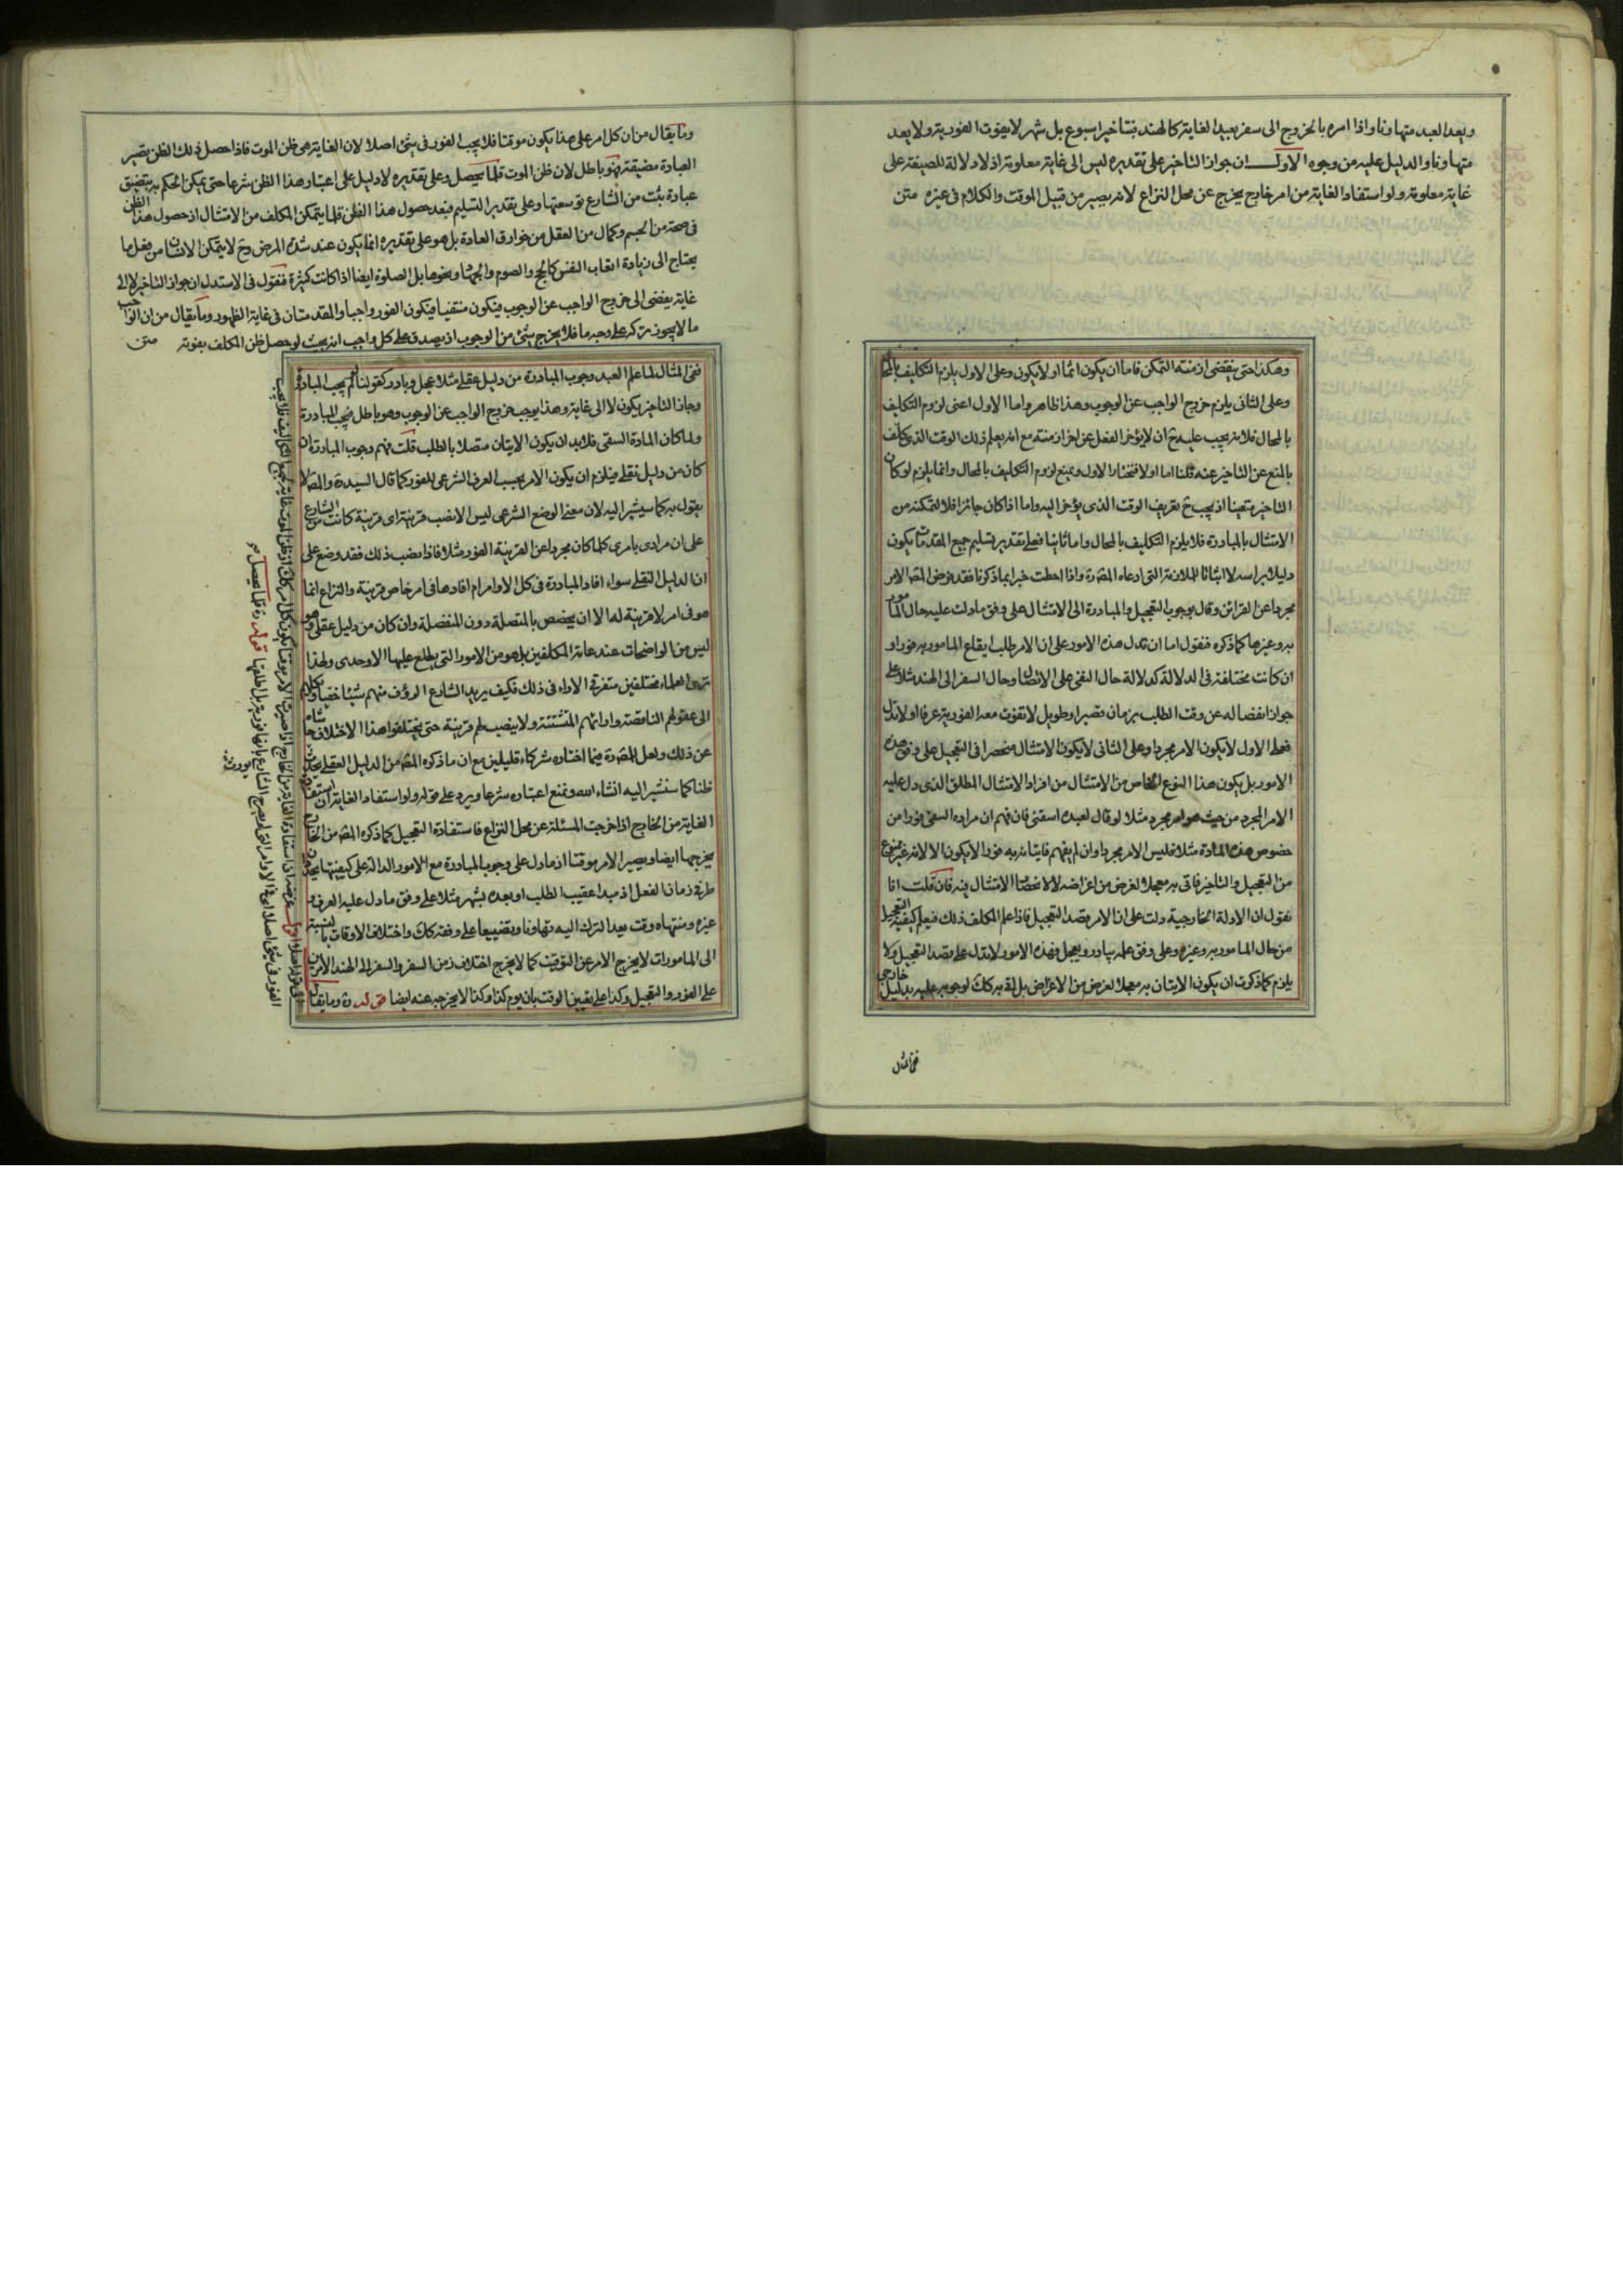 ويعد العبد متهاونا واذا امره بالخروج الى سفر بعيد الغاية كالهند فبتاخير اسبوع بل شهر لا يفوت الفورية ولا يعد
متهاونا والدليل عليه من وجوه الاول ان جواز التاخير على تقديره ليس الى غاية معلومة اذ لا دلالة للصيغة على
غاية معلومة ولو استفاد الغاية من امر خارج يخرج عن محل النزاع لانه يصير من قبيل الموقت والكلام فى غيره متن
وهكذا حتى ينقضى ازمنة التمكن فاما ان يكون اثما او لا يكون وعلى الاول يلزم التكليف بالمحال
وعلى الثانى يلزم خروج الواجب عن الوجوب وهذا ظاهر واما الاول اعنى لزوم التكليف
بالمحال فلانه يجب عليه ح ان لا يؤخر الفعل عن اخر ازمنته مع انه يعلم ذلك الوقت الذى كلف
بالمنع عن التاخير عنه قلنا اما اولا فنختار الاول ونمنع لزوم التكليف بالمحال وانما يلزم لو كان
التاخير متعينا اذ يجب ح تعريف الوقت الذى يؤخر اليه واما اذا كان جائزا فلا لتمكنه من
الامتثال بالمبادرة فلا يلزم التكليف بالمحال واما ثانيا فعلى تقدير تسليم جميع المقدمات يكون
دليلا براسه لا اثباتا للملازمة التى ادعاه المصره واذا احطت خبرا بما ذكرنا فقد فرض المصر الامر
مجردا عن القرائن وقال بوجوب التعجيل والمبادرة الى الامتثال على وفق ما دلت عليه حال المامور
به وغيرها كما ذكره فنقول اما ان تدل هذه الامور على ان الامر طلب ايقاع المامور به فورا و
ان كانت مختلفة فى الدلالة كدلالة حال السقى على الاتصال وحال السفر الى الهند مثلا على
جواز انفصاله عن وقت الطلب بزمان قصير او طويل لا تفوت معه الفورية عرفا او لا تدل
فعلى الاول لا يكون الامر مجردا وعلى الثانى لا يكون الامتثال منحصرا فى التعجيل على وفق هذه
الامور بل يكون هذا النوع الخاص من الامتثال من افراد الامتثال المطلق الذى دل عليه
الامر المجرد من حيث هو امر مجرد مثلا لو قال لعبده اسقنى فان فهم ان مراده السقى فورا من
خصوص هذه المادة مثلا فليس الامر مجردا وان لم يفهم فاتيانه به فورا لا يكون الا لانه غير ممنوع
من التعجيل والتاخير فاتى به معجلا لغرض من اغراضه لا لانحصار الامتثال فيه فان قلت انا
نقول ان الادلة الخارجية دلت على ان الامر يقصد التعجيل فاذا علم المكلف ذلك فيعلم كيفية التعجيل
من حال المامور به وغيره وعلى وفق علمه يبادر ويعجل فهذه الامور لا تدل على قصد التعجيل ولا
يلزم كما ذكرت ان يكون الاتيان به معجلا لغرض من الاغراض بل اتى به كك لوجوبه عليه بدليل خارجى
ففى المثال
وما يقال من ان كل امر على هذا يكون موقتا فلا يجب الفور فى شئ اصلا لان الغاية هى ظن الموت فاذا حصل ذلك الظن يصير
العبادة مضيقة فهو باطل لان ظن الموت قلما يحصل وعلى تقديره لا دليل على اعتبار هذا الظن شرعا حتى يمكن الحكم به بتضيق
عبادة ثبت من الشارع توسعتها وعلى تقدير التسليم فبعد حصول هذا الظن قلما يتمكن المكلف من الامتثال اذ حصول هذا الظن
فى صحة من الجسم وكمال من العقل من خوارق العادة بل هو على تقديره انما يكون عند شدة المرض وح لا يتمكن الانسان من فعل ما
يحتاج الى زيادة اتعاب النفس كالحج والصوم والجهاد ونحوها بل الصلوة ايضا اذا كانت كثيرة فنقول فى الاستدل ان جواز التاخير لا الى
غاية يفضى الى خروج الواجب عن الوجوب فيكون منتفيا فيكون الفور واجبا والمقدمتان فى غاية الظهور وما يقال من ان الواجب
ما لا يجوز تركه على وجه ما فلا يخرج شئ من الوجوب اذ يصدق على كل واجب انه بحيث لو حصل ظن المكلف بفوته متن
ففى المثال لما علم العبد وجوب المبادرة من دليل عقلى مثلا عجل وبادر كقولنا لو لم يجب المبادرة
وجاز التاخير يكون لا الى غاية وهذا يوجب خروج الواجب عن الوجوب وهو باطل فيجب المبادرة
ولما كان المادة السقى فلا بد ان يكون الاتيان متصلا بالطلب قلت فهم وجوب المبادرة ان
كان من دليل نقلى فيلزم ان يكون الامر بحسب العرف الشرعى للفور كما قال السيد ره والمصر لا
يقول به كما سيشير اليه لان معنى الوضع الشرعى ليس الا نصب قرينة اى قرينة كانت من الشارع
على ان مرادى بامرى كلما كان مجردا عن القرينة الفور مثلا فاذا نصب ذلك فقد وضع على
ان الدليل النقلى سواء افاد المبادرة فى كل الاوامر ام افادها فى امر خاص قرينة والنزاع انما
هو فى امر لا قرينة له الا ان يخصص بالمتصلة دون المنفصلة وان كان من دليل عقلى وهو
ليس من الواضحات عند عامة المكلفين بل هو من الامور التى يطلع عليها الاوحدى ولهذا
ترى العلماء مختلفين متفرقى الاراء فى ذلك فكيف يريد الشارع الرؤف منهم شيئا خفيا ويكلهم
الى عقولهم الناقصة وارائهم المتشتتة ولا ينصب لهم قرينة حتى يختلفوا هذا الاختلاف حاشاه
عن ذلك ولعل المصره فيما اختاره شركاء قليلين مع ان ما ذكره المصر من الدليل العقلى يحدث
ظنا كما سنشير اليه انشاء الله ونمنع اعتباره شرعا ويرد على قوله ولو استفاد الغاية ان استفادة
الغاية من الخارج اذا اخرجت المسئلة عن محل النزاع فاستفادة التعجيل كما ذكره المصر من الخارج
يخرجها ايضا ويصير الامر موقتا اذ ما دل على وجوب المبادرة مع الامور الدالة على كيفيتها يحددان
طرفى زمان الفعل اذ مبدا عقيب الطلب او بعده بشهر مثلا على وفق ما دل عليه العرف و
غيره ومنتهاه وقت يعد الترك اليه تهاونا وتضييعا على وفقه كك واختلاف الاوقات بالنسبة
الى المامورات لا يخرج الامر عن التوقيت كما لا يخرج اختلاف زمن السفر والسفر الى الهند الامرين
على الفور والتعجيل وكذا على تعيين الوقت بان يوم كذا وكذا لا يخرجه عنه ايضا قوله ره وما يقال